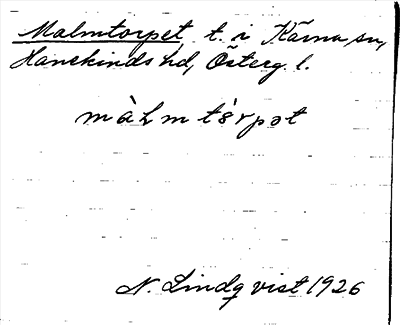 Malmtorpet t. i Kärna sn,
Hanekinds hd, Österg. l.
màLmtórpət
N. Lindqvist 1926